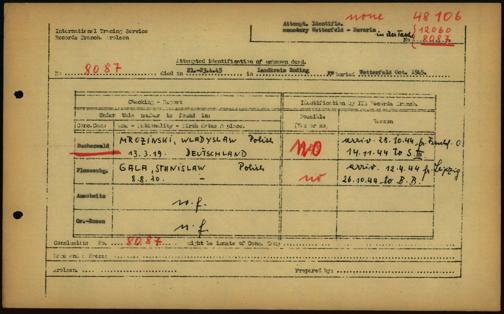 International Tracing Service
Records Branch. Arolsen
Attempt. Identifia.
none
48106
cemetery Wetterfeld - Bavaria.
12060
No 8087
Attempted identification of unknown dead.
No 8087 died on 21.-23.4.45 in Landkreis Roding buried Wetterfeld Oct. 1945.
Checking - Report
Identification by ITS Records Branch.
Under this number is found in:
Possible
Conc.Camp
Yes or no.
Reason
Buchenwald
MROZINSKI, WLADYSLAW Polish
13.3.19. DEUTSCHLAND
NO
arriv. 28.10.44
14.11.44 to S III
Flossenbg.
GALA, STANISLAW Polish
8.8.20. -
no
arriv. 12.4.44 fr. Leipzig
26.10.44 to B.B.!
Auschwitz
n.f.
Gr.-Rosen
n.f.
Conclusion: No. 8087 might be inmate of Conc. Camp
Arolsen
Prepared by: